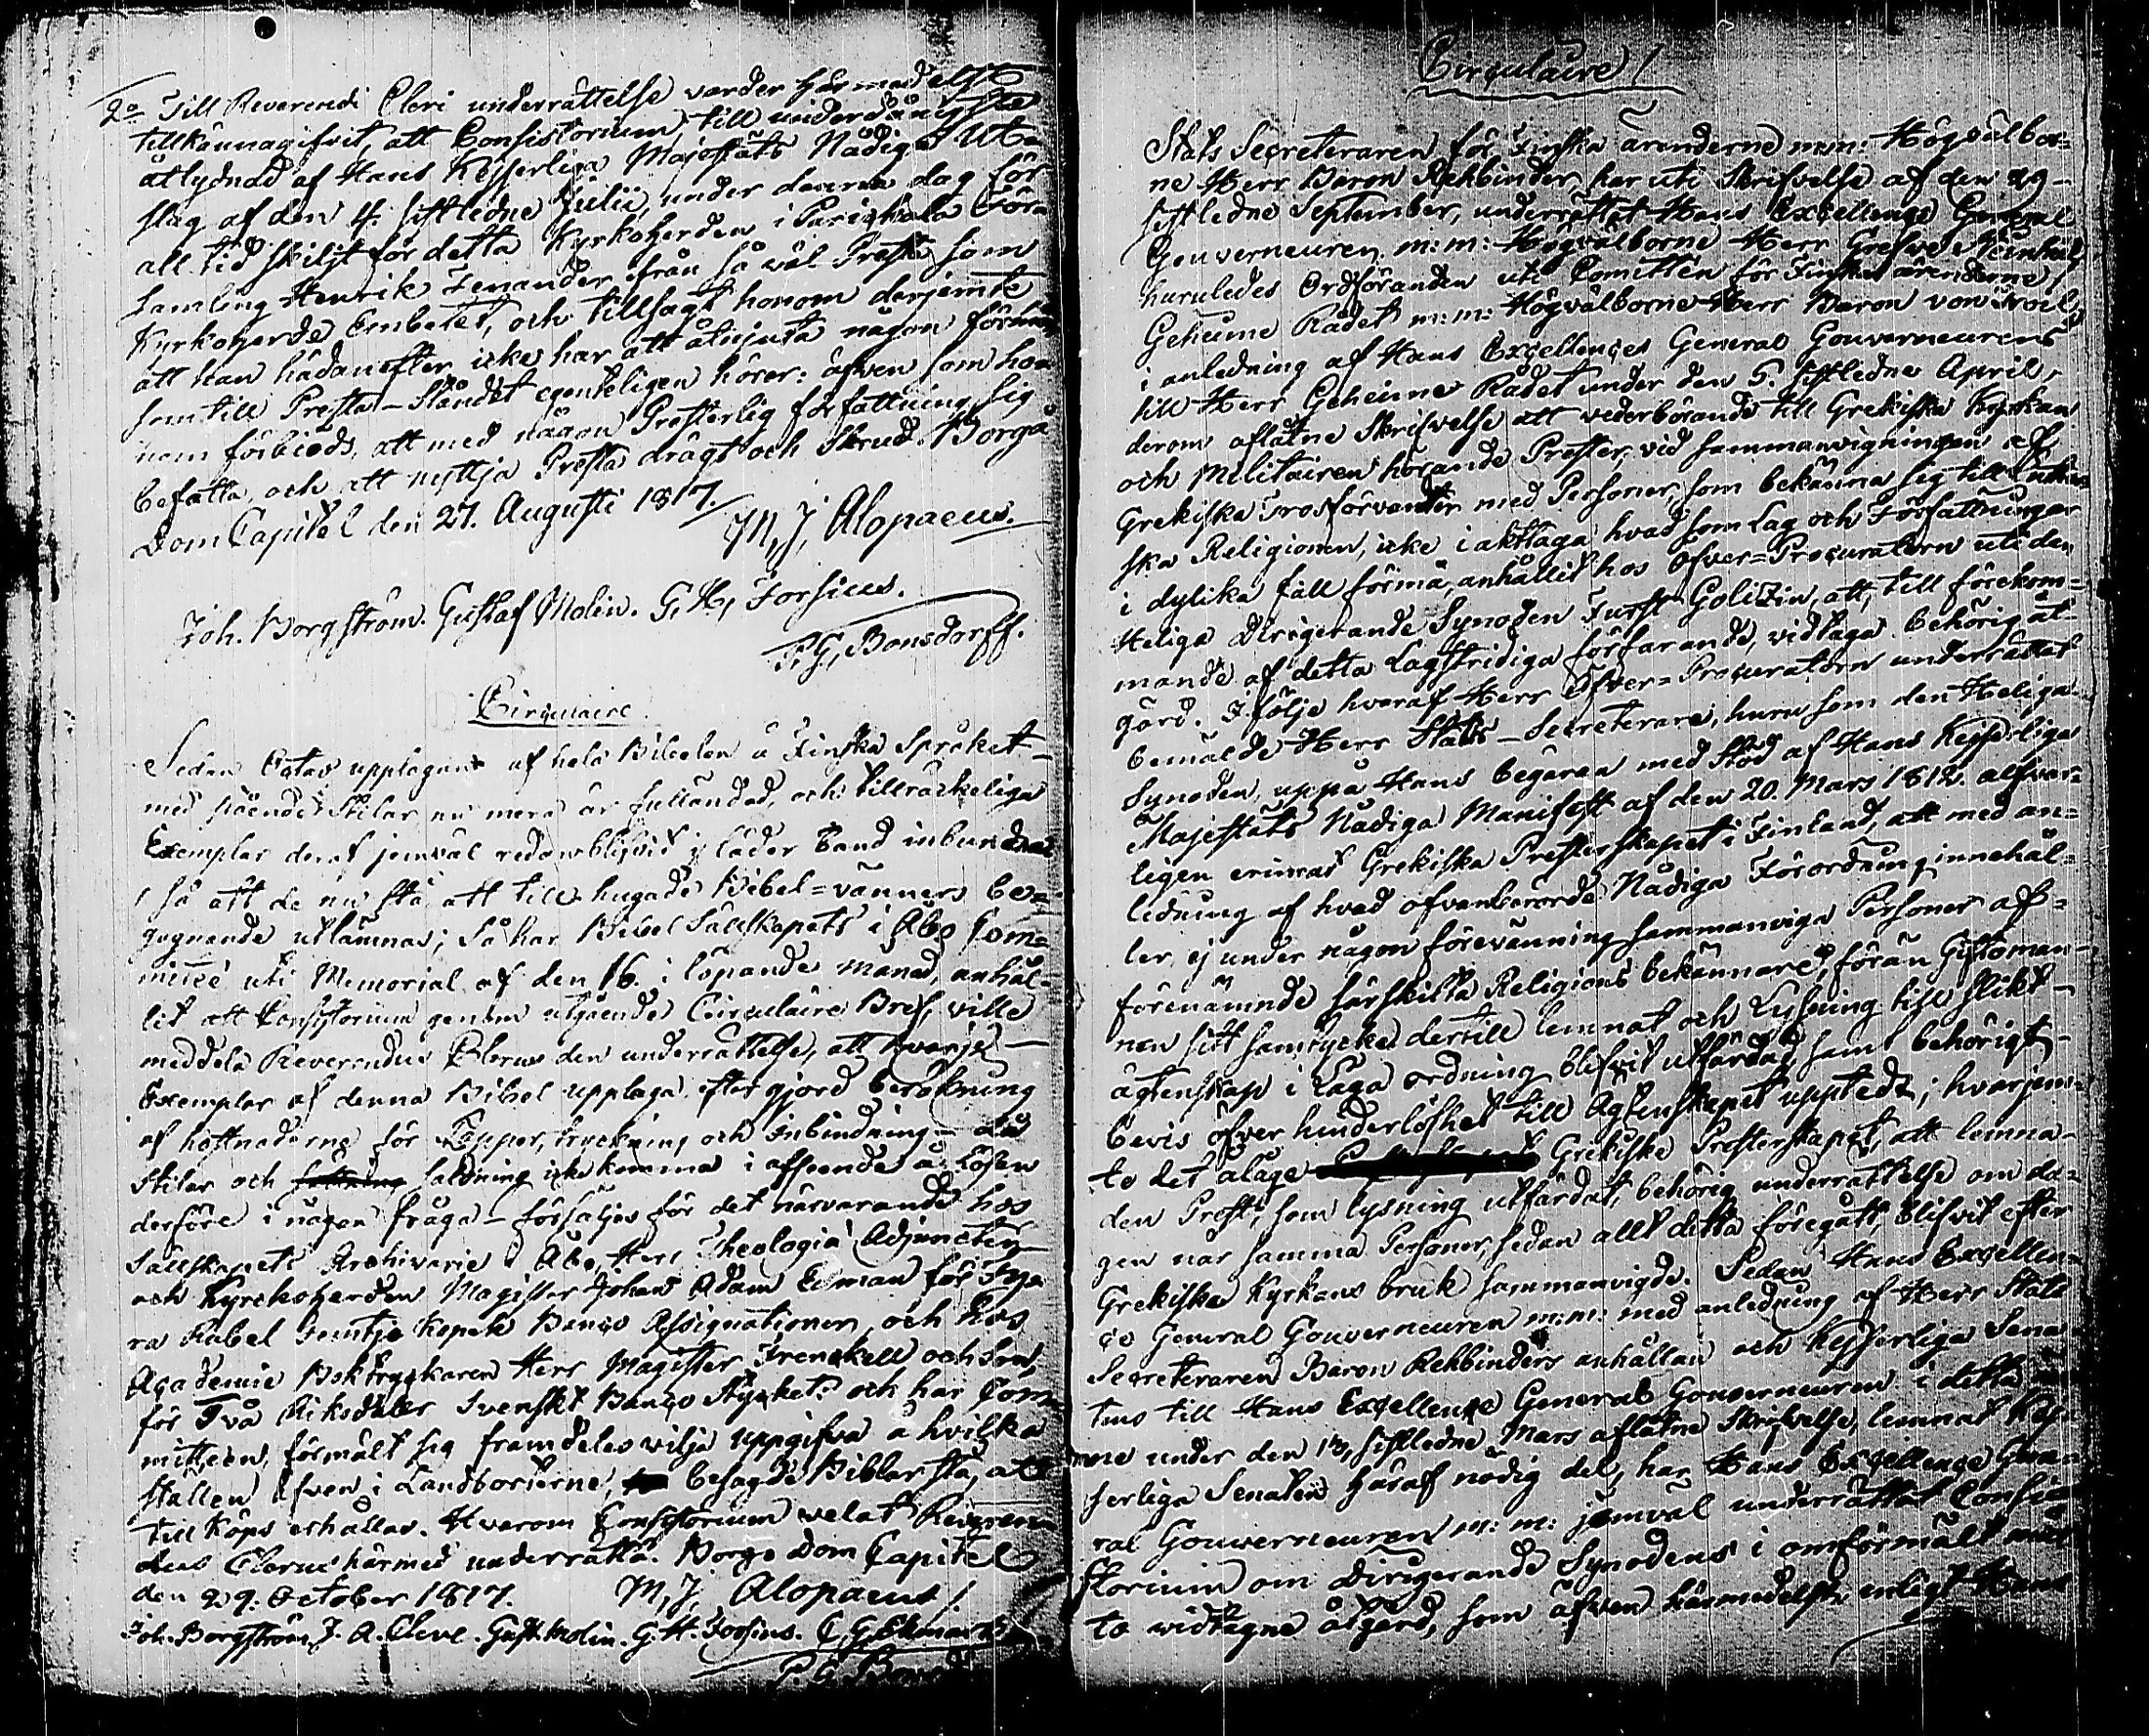 2o Till Reverendi Cleri underrättelse varder härmedelst
tillkännagifvit, att Consistorium, till underdånigste
åtlydnad af Hans Kejserliga Majestäts Nådiga Ut-
slag af den 4. sistledne Julii, under denna dag för
all tid skiljt för detta Kyrkoherden i Parikkala För-
samling Henrik Fenander från så väl Prest som
Kyrkoherde Embetet, och tillsagt honom derjemte
att han hädanefter icke har att åtnjuta någon förmån
som till Presta-Ståndet egenteligen hörer: äfven som ho-
nom förbieds, att med någon Presterlig författning sig
befatta, och att nyttja Presta drägt och Skrud. Borgå
Dom Capitel den 27. Augusti 1817.
M, J, Alopaeus.
Joh. Borgström. Gustaf Molin. G. H, Forsius.
P. G, Bonsdorff.
Circulaire
Sedan Octav upplagan af hela Bibeln å Finska Språket
med stående Stilar nu mera är fulländad, och tillräckeliga
Exemplar deraf jemväl redan blifvit i läder band inbundna
så att de nu stå att till hugade Bibel=vänners be-
gagnande utlämnas; Så har Bibel Sällskapets i Åbo Com-
mitté uti Memorial af den 16. i löpande månad, anhål-
lit att Consistorium genom utgående Circulaire Bref, ville
meddela Reverendus Clerus den underrättelse, att hvarje
Exemplar af denna Bibel upplaga efter gjord beräkning
af kostnaderne för Papper, tryckning och Inbindning - då
Stilar och sättning icke komma i afseende å Lösen
derföre i någon fråga - försäljes för det närvarande hos
Sällskapets Archivarie i Åbo, Herr Theologiæ Adjuncten
och Kyrckoherden Magister Johan Adam Edman för Fyra
ra Rubel femtio kopek Banco Assignationer, och hos
Academie Boktryckaren Herr Magister Frenckell och Son,
för Två Riksdaler Svenskt Banco Stycket: och har Com-
mitteen, förmält sig framdeles vilja uppgifva å hvilka
ställen äfven i Landsorterne, besagde Biblar stå, att
till köps erhållas. Hvarom Consistorium velat Reveren-
dus Clerus härmed underrätta. Borgo Dom Capitel
den 29. October 1817. M, J, Alopaeus!
Joh. Borgström J. A. Cleve. Gust. Molin. G. H. Forsius. C. G. Ekman
P. G. Bonsd
Circulaire!
Stats Secreteraren för Finska ärenderne m:m: Högvälbor-
ne Herr Baron Rehbinder, har uti Skrifvelse af den 29
sistledne September, underrättat Hans Excellence General
Gouverneuren m:m: Högvälborne Herr Grefve Steinheil,
huruledes Ordföranden uti Comittén för Finska ärenderne,
Geheime Rådet m:m: Högvälborne Herr Baron von Troil,
i anledning af Hans Excellences General Gouverneurens
till Herr Geheime Rådet under den 5. sistledne April
derom aflåtne Skrifvelse att vederbörande till Grekiska Kyrkan
och Militairen hörande Prester, vid sammanvigningen af
Grekiska Trosförvanter med Personer, som bekänna sig till Luther-
ska Religionen, icke iakttaga hvad som Lag och Författningar
i dylika fall förmå, anhållit hos Ofver=Procuratorn uti den
Heliga Dirigerande Synoden Furst Golizin, att, till förekom-
mande af detta Lagstridiga förfarande, vidtaga behörig åt-
gärd. I följe hvaraf Herr Ofver=Procuratorn underrättat
bemälde Herr Stats-Secreterare, huru som den Heliga
Synoden, uppå Hans begäran med stöd af Hans Kejserliga
Majestäts Nådiga Manifest af den 20. Mars 1812. alfvar-
ligen erinrat Grekiska Presterskapet i Finland, att med an-
ledning af hvad ofvanberörde Nådiga Förordning innehål-
ler, ej under någon förevänning sammanviga Personer af
förenämnde särskilta Religions bekännare, förän Giftoman-
nen sitt samtycke dertill lemnat och Lysning till slikt
ägtenskap i Laga ordning blifvit utfärdad, samt behörigt
bevis öfver hinderlöshet till Ägtenskapet upptedt; hvarjem-
te det ålage Grekiske Presterskapet, att lemna
den Prest, som lysning utfärdat, behörig underrättelse om da-
gen när samma Personer, sedan allt detta föregått blifvit efter
Grekiska Kyrkans bruk sammanvigde. Sedan Hans Excellen-
ce General Gouverneuren m:m: med anledning af Herr Stats
Secreteraren Baron Rehbinders anhållan och Kejserliga Sena-
tens till Hans Excellence General Gouverneuren i detta äm-
ne under den 13, sistledne Mars aflåtne Skrifvelse, lemnat Kej-
serliga Senaten häraf nödig del, har Hans Excellence Gene-
ral Gouverneuren m: m: jemväl underrättat Consi-
storium om Dirigerande Synodens i omförmält mål
to vidtagne åtgärd, som äfven härmedelst enligt Hans